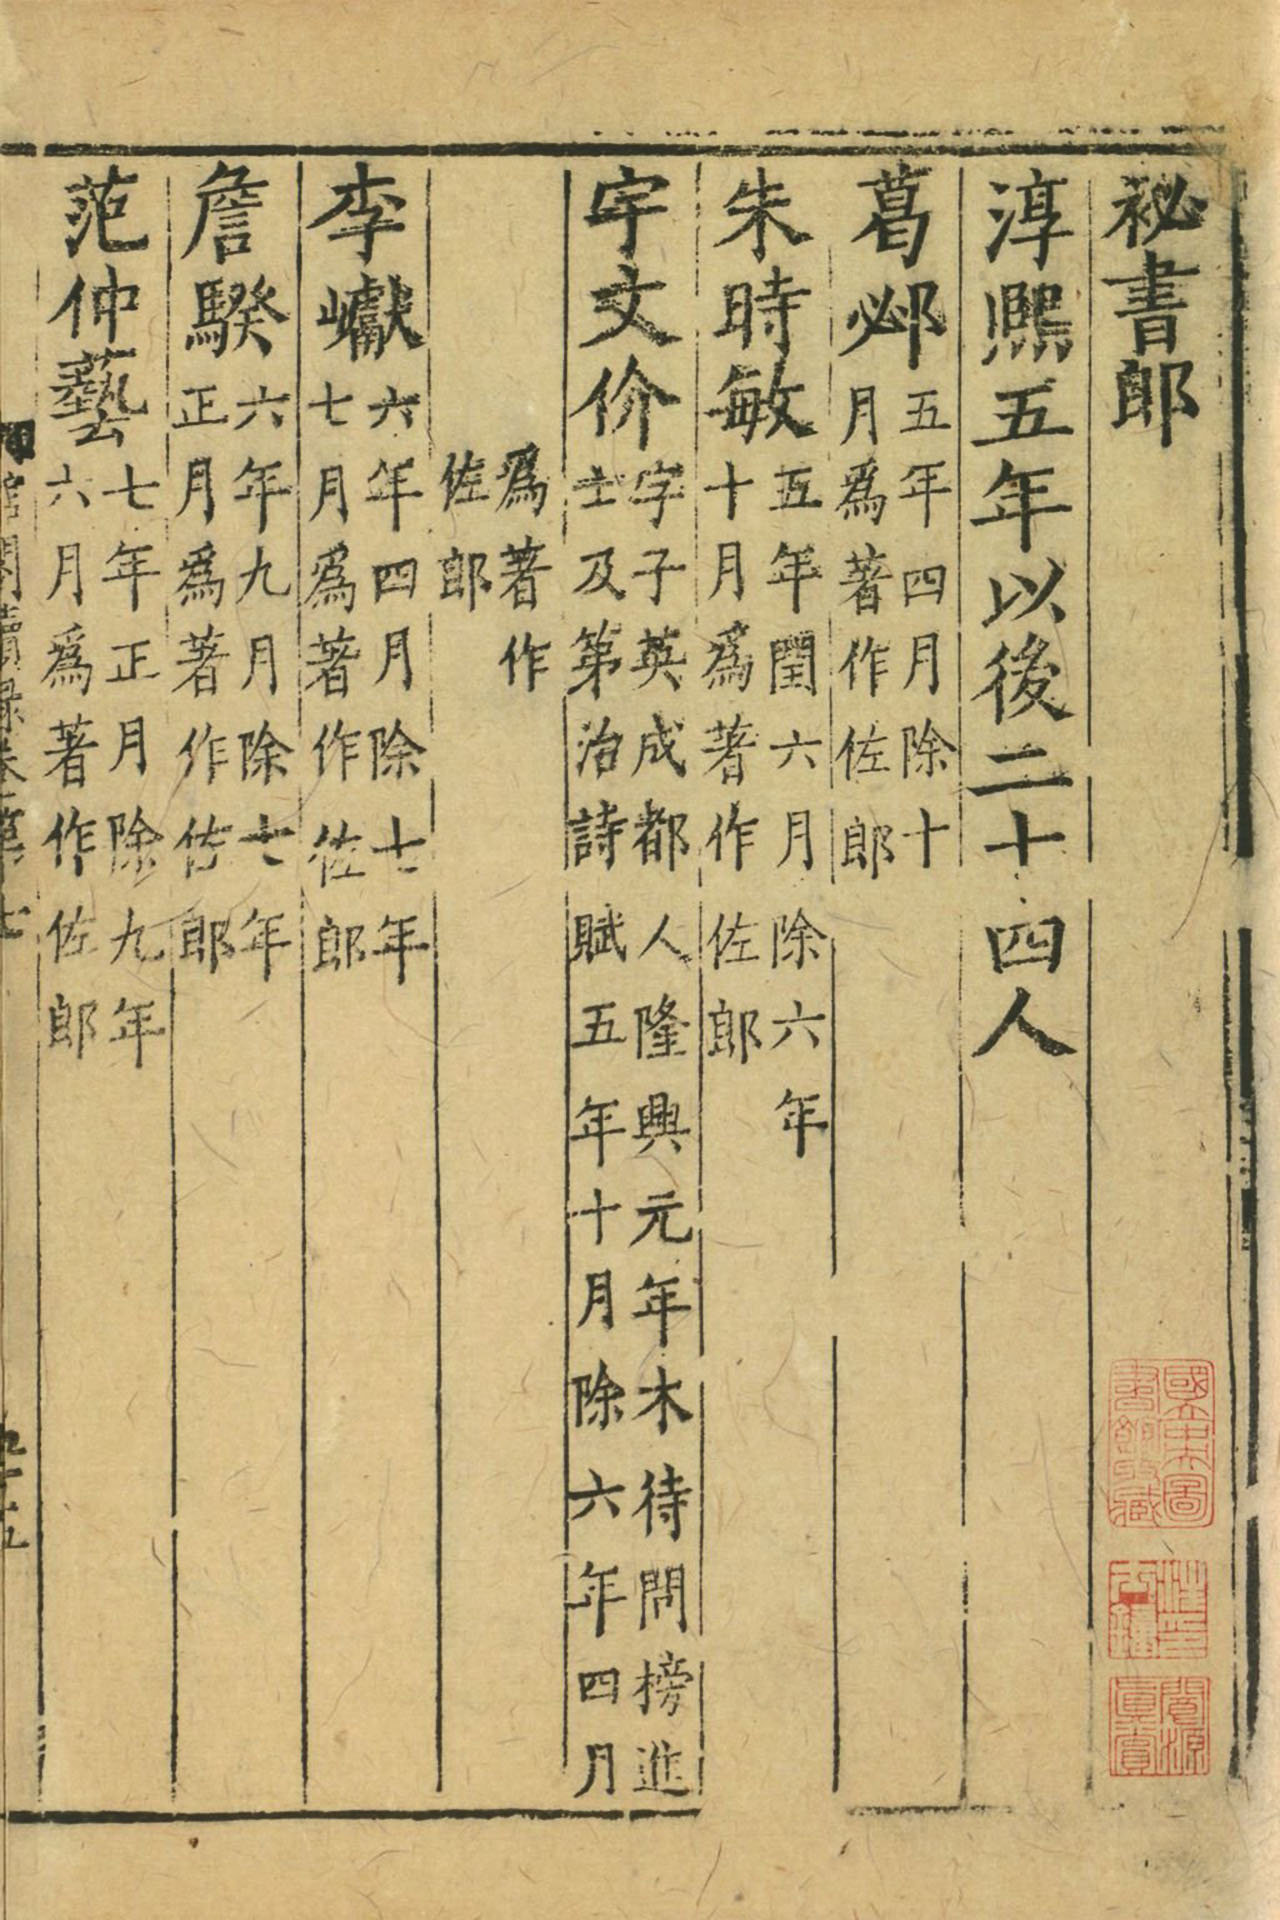 祕書郎
淳熙五年以後二十四人
葛邲五年四月除十
月爲著作佐郎
朱時敏五年閏六月除六年
十月爲著作佐郎
宇文价字子英成都人隆興元年木待問榜進
士及第治詩賦五年十月除六年四月
爲著作
佐郎
李巘六年四月除七年
七月爲著作佐郎
詹騤六年九月除七年
正月爲著作佐郎
范仲藝七年正月除九年
六月爲著作佐郎
館閣續錄卷第七
九十五
國立中央圖
書館收藏
閬源
眞賞